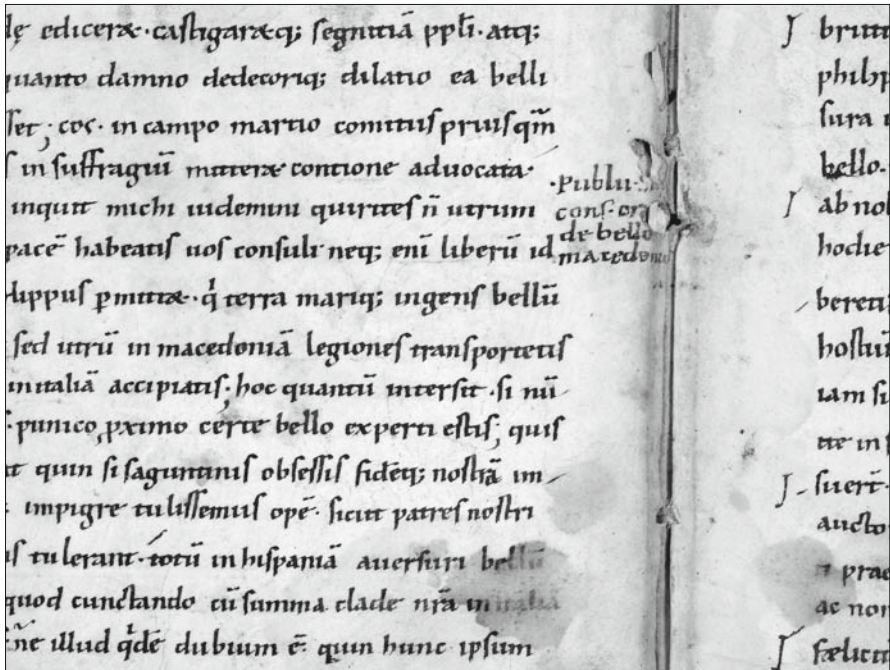 dę edicer&·castigar&q; segnitiā ppl̄i·atq;
quanto damno dedecoriq; dilatio ea belli
ss&; cos· in campo martio comitiis priusqm̄
in suffragiū mitter& contione advocata·
inquit michi uidemini quirites n̄ utrum
pacē habeatis uos consuli neq; eni liberū id
lippus pmitt&·qd̄ terra mariq; ingens bellū
sed utrū in macedoniā legiones transportetis
in italiā accipiatis; hoc quantū intersit·si nū
punico pximo certe bello experti estis; quis
quin si saguntinis obsessis fidēq; nostrā im
impigre tulissemus opē· sicut patres nostri
tulerant·totū in hispaniā auersuri bellū
quod cunctando cū summa clade nrā in italia
ne illud qdē dubium ē· quin hunc ipsum
·Publii·
cons·or
de bello
macedon
britti
philip
sura
bello·
ab nob
hodie
bereti
hostiū
iam si
tte in
suert·
aucto
prae
ac non
fælicit